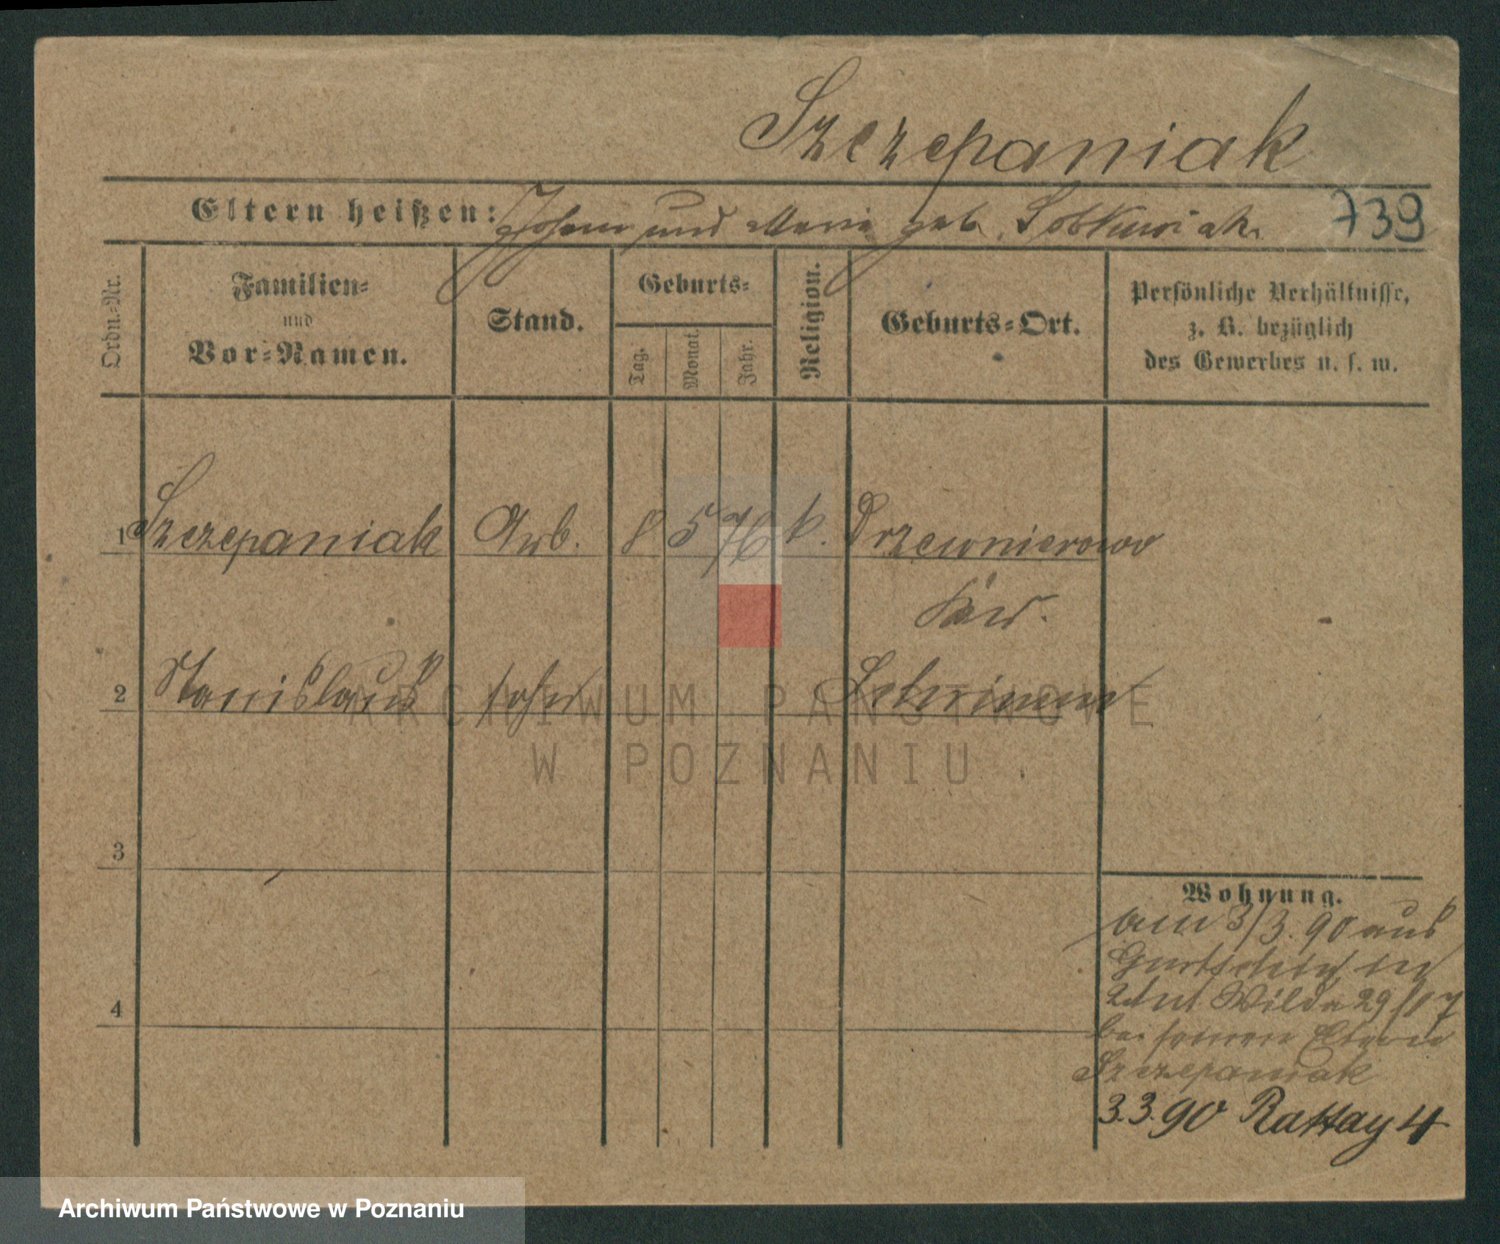 Szczepaniak
Eltern heißen: Johann und Maria geb. Sobkowiak. 739
Ordn.-Nr.
Familien-
und
Vor-Namen.
Stand.
Geburts-
Tag.
Monat.
Jahr.
Religion.
Geburts-Ort.
Persönliche Verhältnisse,
z. B. bezüglich
des Gewerbes u. s. w.
1 Szczepaniak Arb. 8 5 76 k. Drzewnierowo
2 Stanislaus sohn Schrimm
3
4
Wohnung.
am 3/3. 90 aus
Wilda 29/
bei seinen Eltern
Szczepaniak
3.3.90 Rattay 4
ARCHIWUM PAŃSTWOWE
W POZNANIU
Archiwum Państwowe w Poznaniu